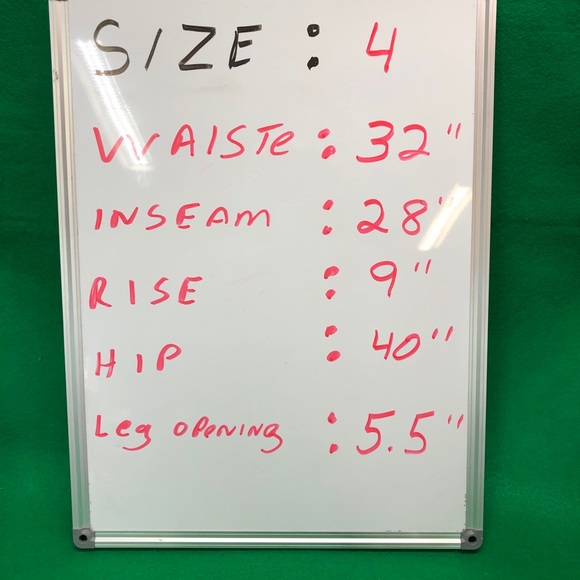 SIZE : 4
WAISTe : 32"
INSEAM : 28"
RISE : 9"
HIP : 40"
Leg OPENING : 5.5"